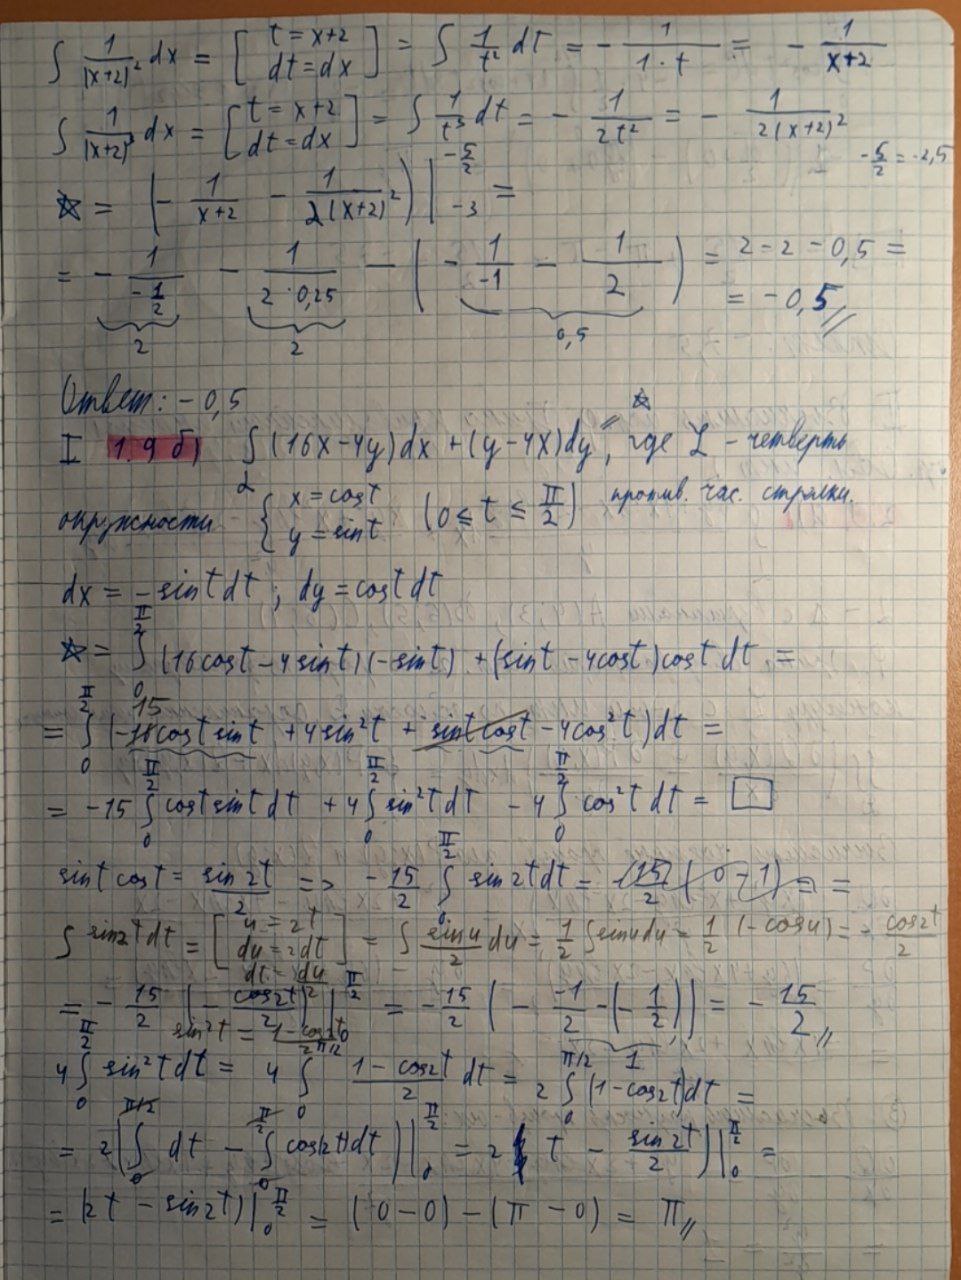 ∫ 1/(x+2)² dx = [t = x+2 dt = dx] = ∫ 1/t² dt = - 1/(1·t) = - 1/(x+2)
∫ 1/(x+2)³ dx = [t = x+2 dt = dx] = ∫ 1/t³ dt = - 1/(2t²) = - 1/(2(x+2)²)
-5/2 = -2,5
☆ = (- 1/(x+2) - 1/(2(x+2)²)) |₋₃^(-5/2) =
= - 1/(-1/2) - 1/(2·0,25) - (- 1/-1 - 1/2) = 2 - 2 - 0,5 =
2 2 0,5 = -0,5 //
Ответ: -0,5
I 1.9 б) ∫_L (16x-4y)dx + (y-4x)dy ☆, где L - четверть
окружности { x = cost y = sint (0 ≤ t ≤ π/2) против. час. стрелки.
dx = -sint dt ; dy = cost dt
☆ = ∫₀^(π/2) (16cost - 4sint)(-sint) + (sint - 4cost)cost dt =
= ∫₀^(π/2) (-16cost sint + 4sin²t + sint cost - 4cos²t)dt =
15
= -15 ∫₀^(π/2) cost sint dt + 4 ∫₀^(π/2) sin²t dt - 4 ∫₀^(π/2) cos²t dt = □
sint cost = sin2t/2 => - 15/2 ∫₀^(π/2) sin2t dt = (15/2)(0-1) = =
∫ sin2t dt = [u = 2t du = 2dt dt = du/2] = ∫ sinu/2 du = 1/2 ∫ sinu du = 1/2 (-cosu) = - cos2t/2
= - 15/2 (- cos2t/2) |₀^(π/2) = - 15/2 (- -1/2 - (- 1/2)) = - 15/2 //
1
sin²t = (1-cos2t)/2
4 ∫₀^(π/2) sin²t dt = 4 ∫₀^(π/2) (1-cos2t)/2 dt = 2 ∫₀^(π/2) (1-cos2t)dt =
= 2(∫₀^(π/2) dt - ∫₀^(π/2) cos2t dt) |₀^(π/2) = 2 ( t - sin2t/2) |₀^(π/2) =
= (2t - sin2t) |₀^(π/2) = (0-0) - (π-0) = π //